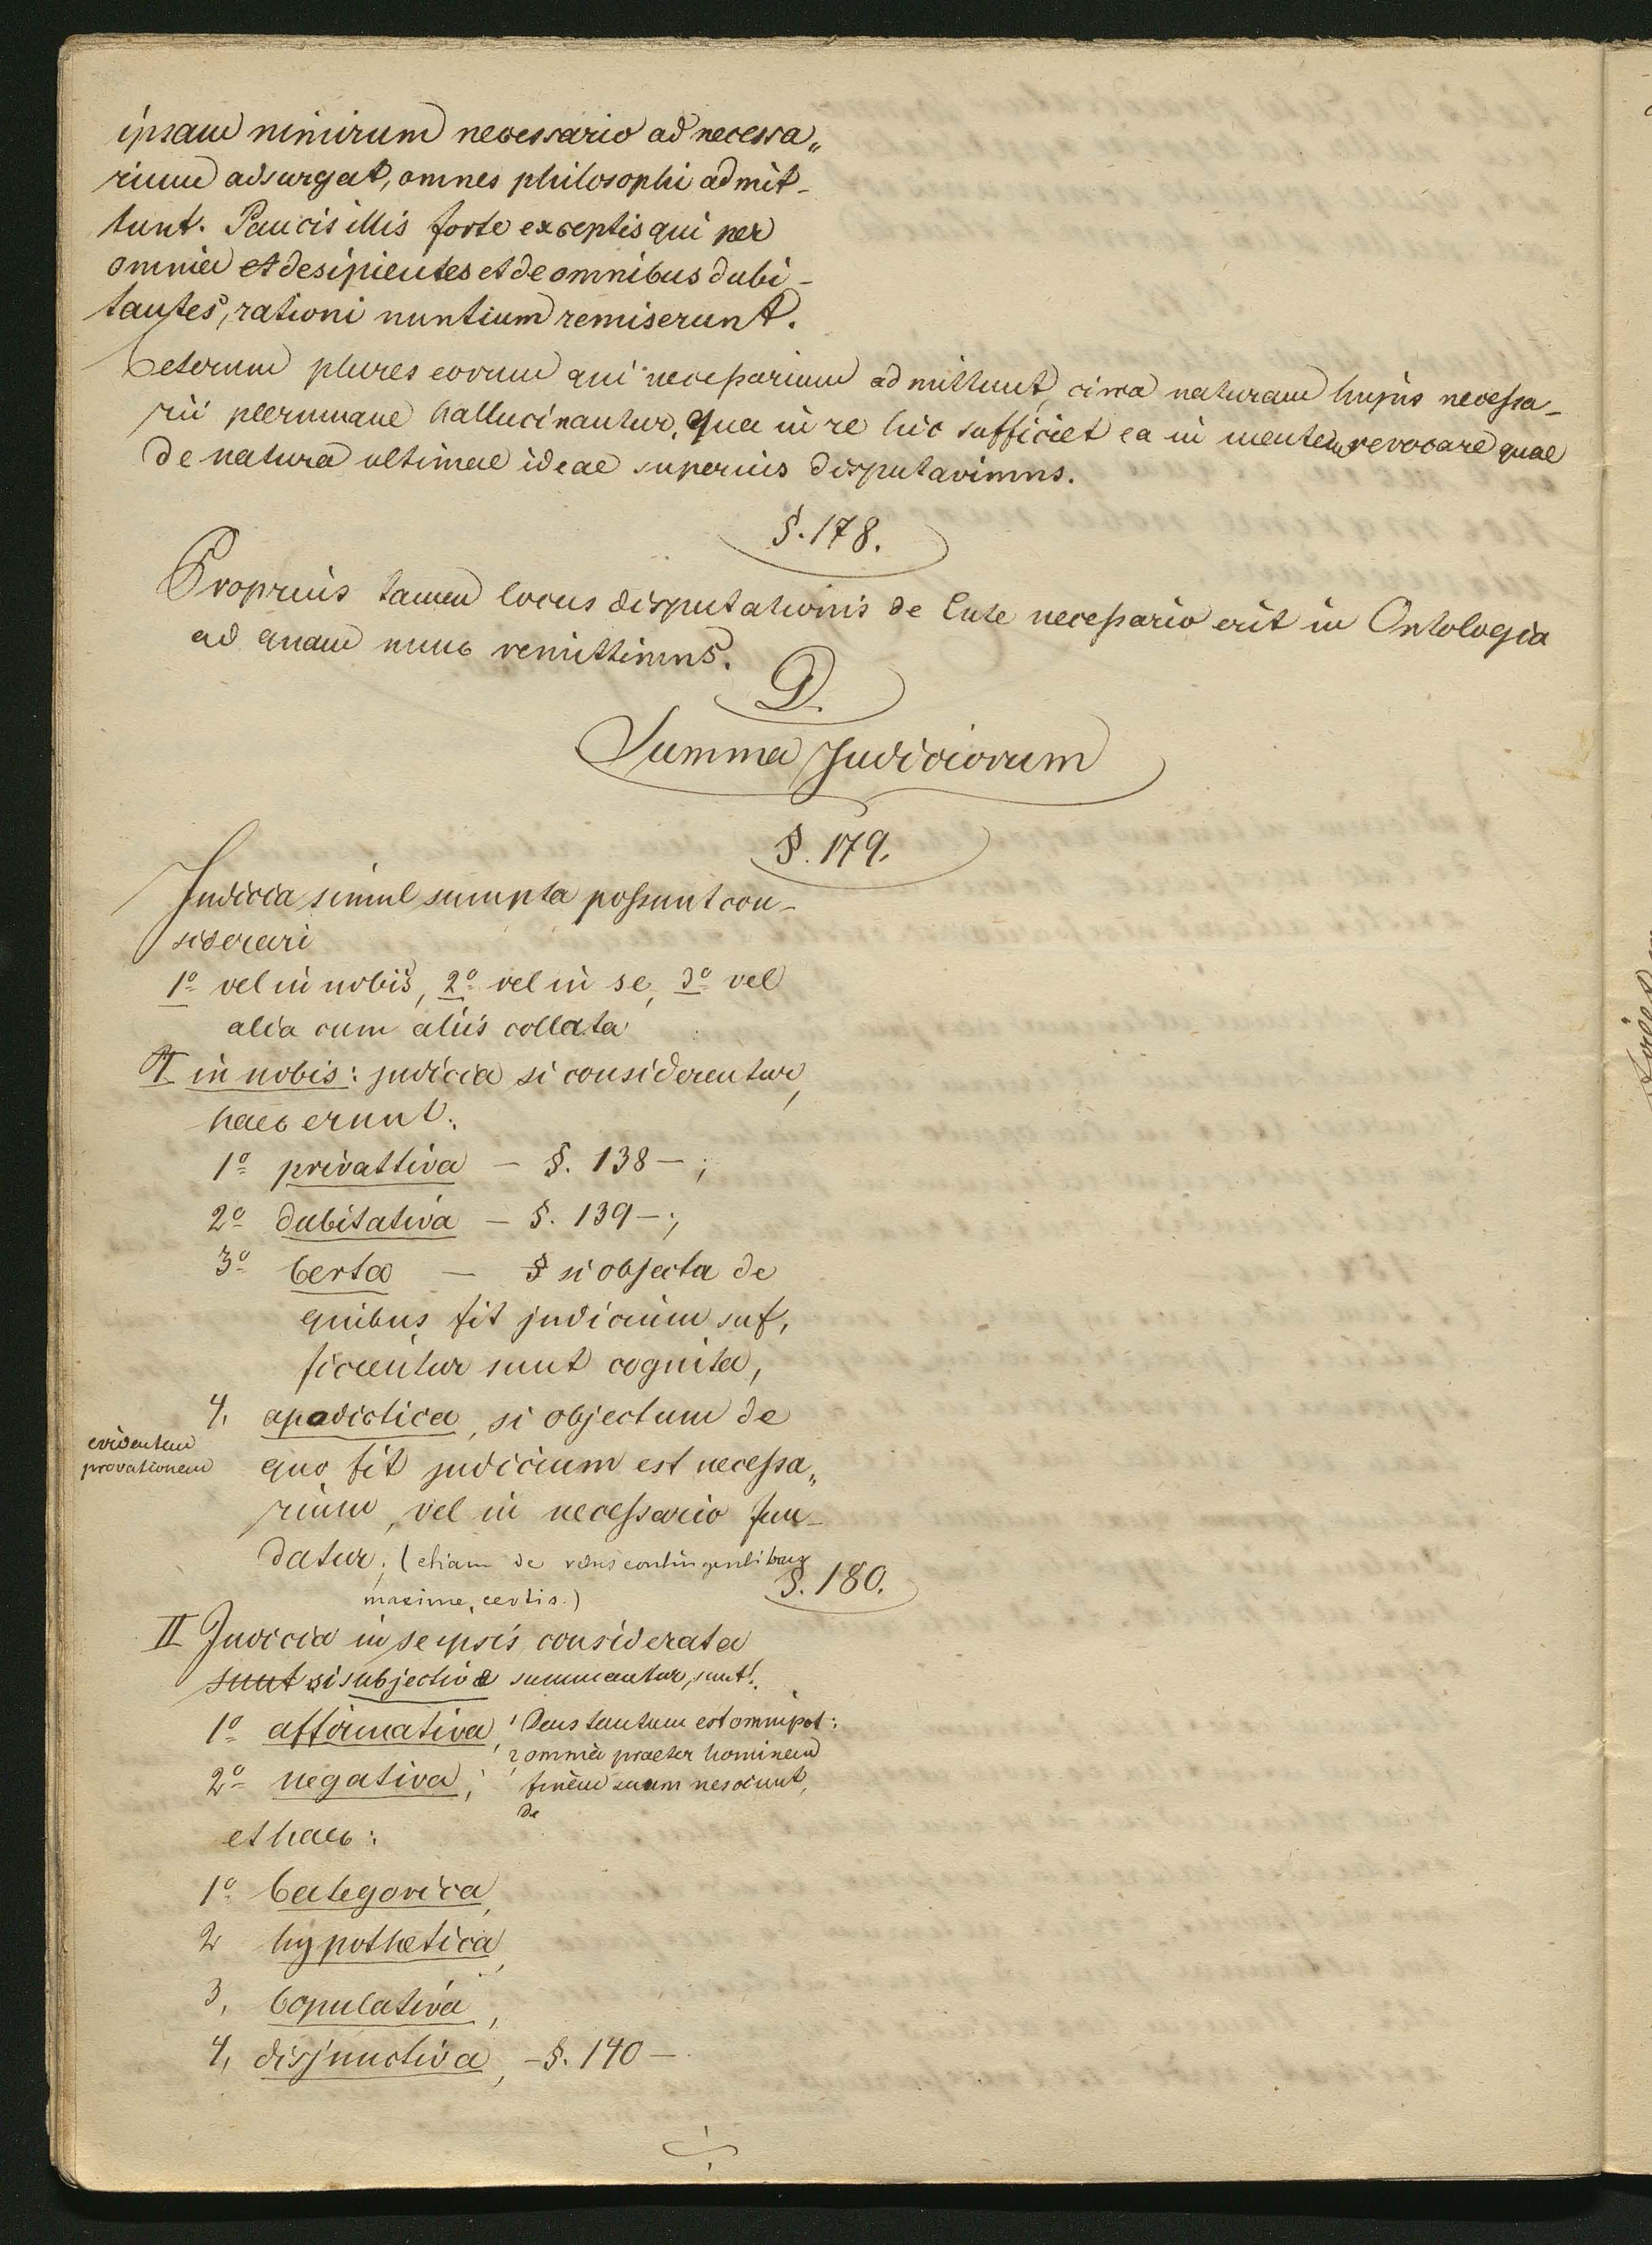 ipsam nimirum necessario ad necessa„
rium adsurgat, omnes philosophi admit-
tunt. Paucis illis forte exceptis qui per
omnia et desipientes et de omnibus dubi-
tantes, rationi nuntium remiserunt.
Ceterum plures eorum qui necessarium admittunt, circa naturam hujus necessa-
rii plerumque hallucinantur. Qua in re hic sufficiet ea in mentem revocare quae
de natura ultimae ideae superius disputavimus.
§. 178.
Proprius tamen locus disputationis de Ente necessario erit in Ontologia
ad quam nunc remittimus.
D.
Summa Judiciorum
§. 179.
Judicia simul sumpta possunt con-
siderari
1º vel in nobis, 2º vel in se, 3º vel
alia cum aliis collata
I in nobis: judicia si considerentur,
haec erunt:
1º privattiva - §. 138 - ;
2º dubitativa - §. 139 - ;
3º Certa - § si objecta de
quibus fit judicium suf,
ficienter sunt cognita,
4, apodictica, si objectum de
evidentem
provationem
quo fit judicium est necessa„
rium, vel in necessario fun-
datur; (etiam de rebus contingentibus
maxime, certis.)
§. 180.
II Judicia in se ipsis considerata
sunt si subjectiva summantur, sunt:
1º affirmativa, 1 Deus tantum est omnipot:
2 omnia praeter hominem
2º negativa; finem suum nesciunt,
de
et haec:
1º Categorica,
2 hypothetica,
3, Copulativa,
4, disjunctiva, - §. 140 -